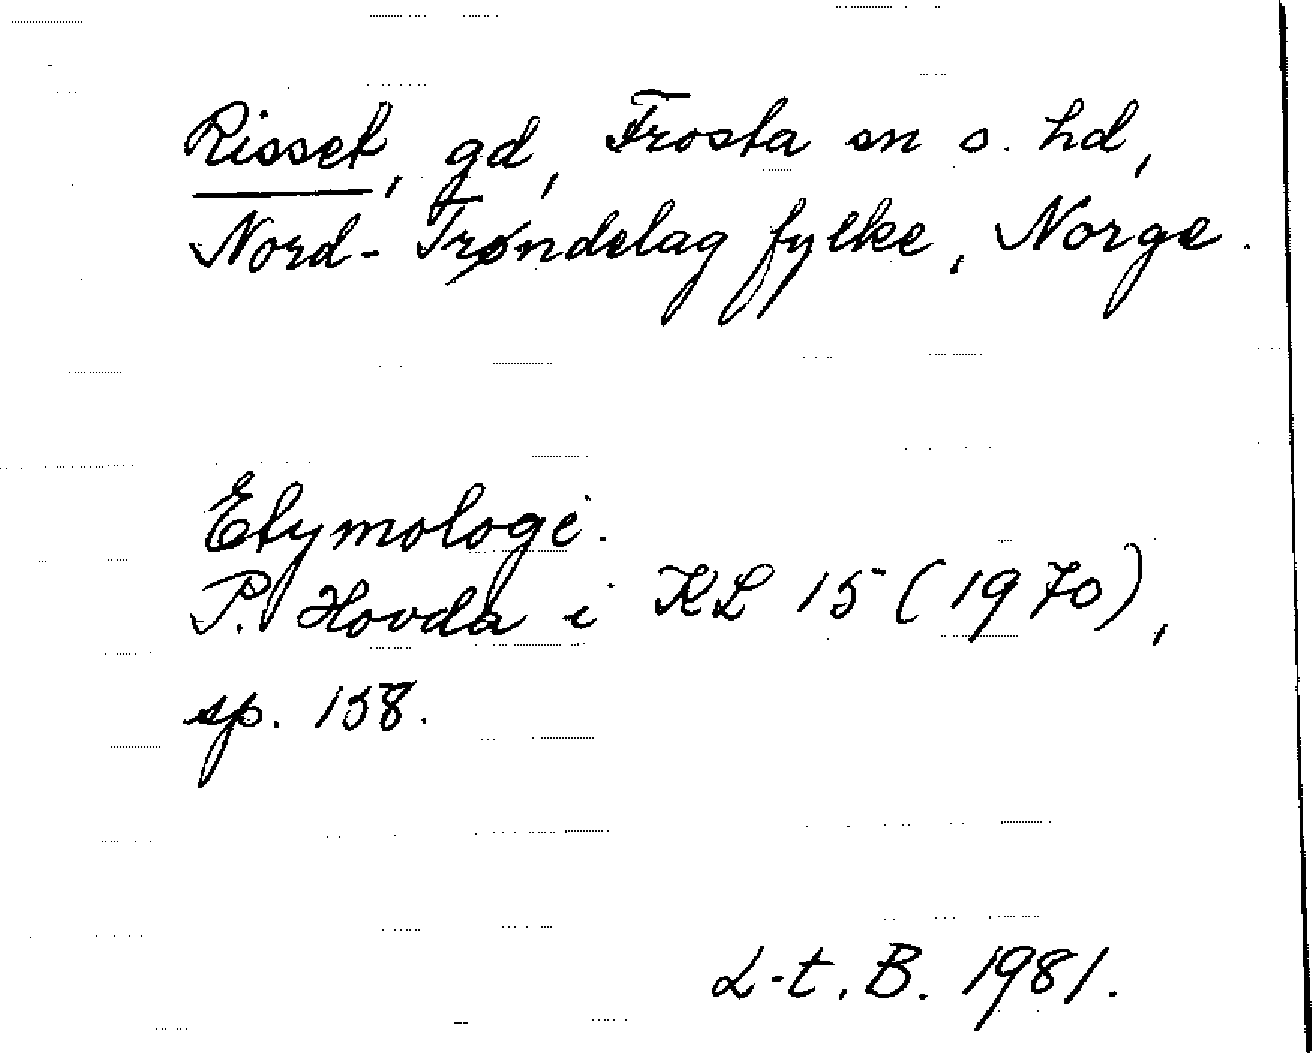 Risset, gd, Frosta sn o. hd,
Nord-Trøndelag fylke, Norge.
Etymologi.
P. Hovda i KL 15 (1970),
sp. 158.
L-t. B. 1981.